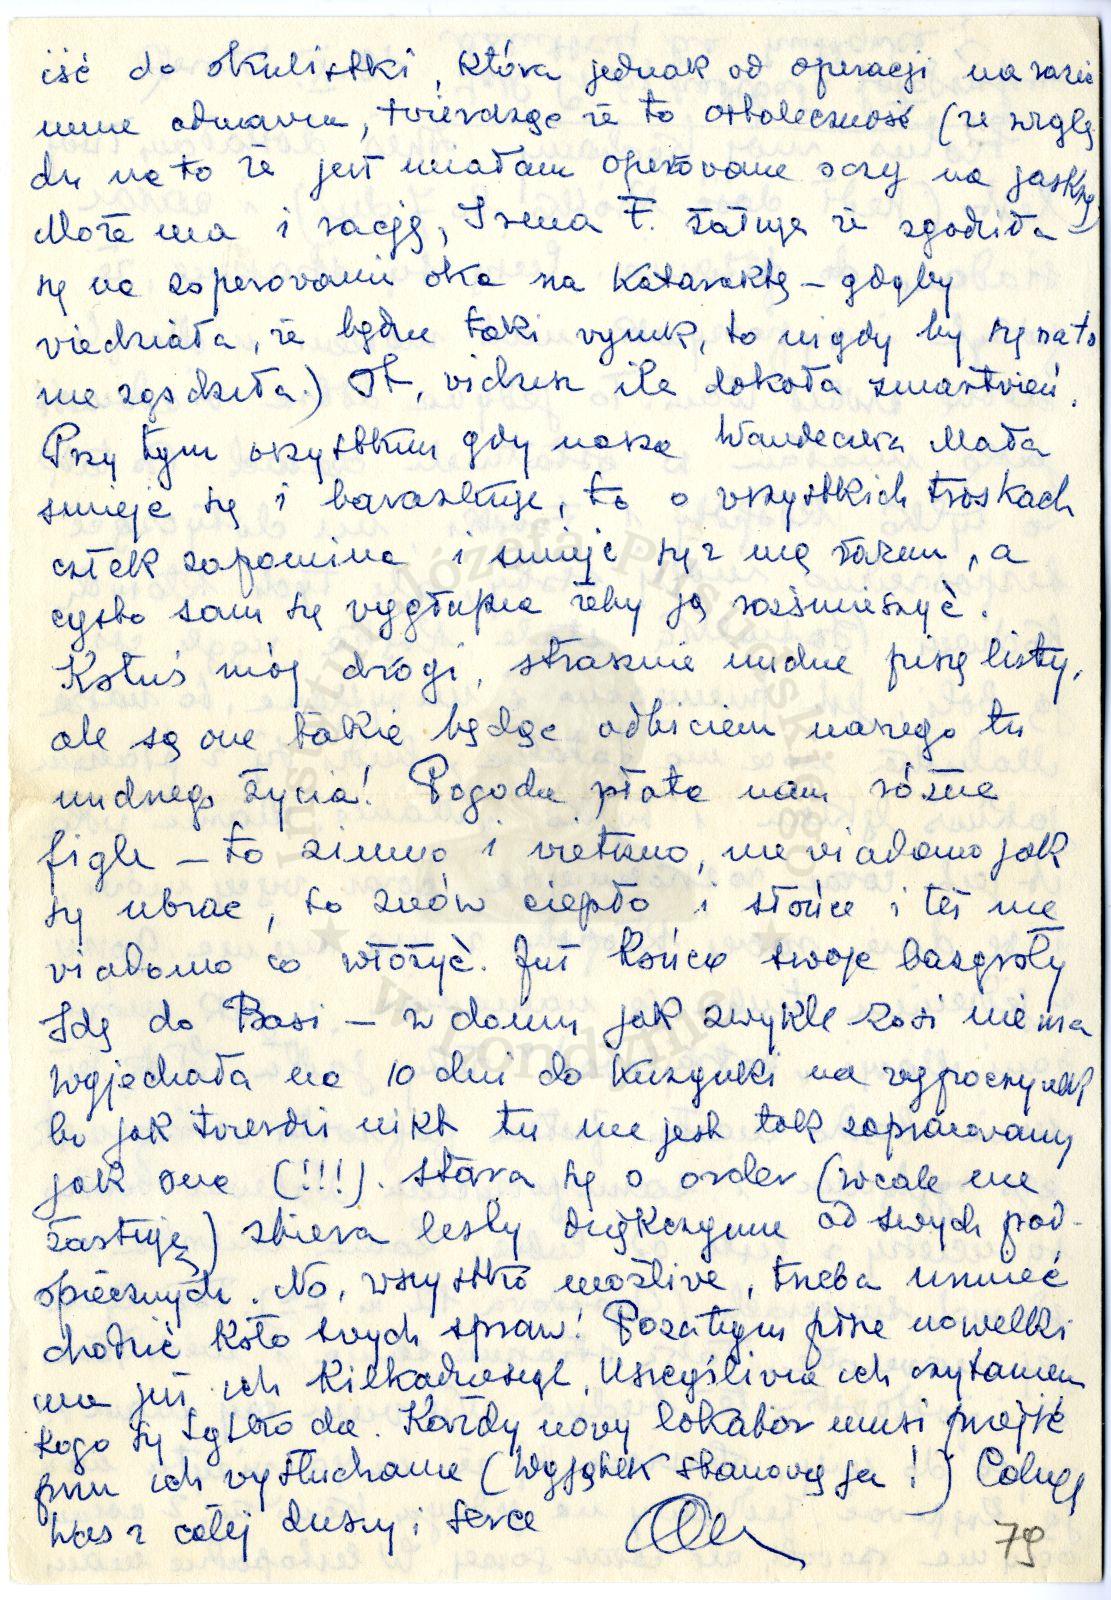 iść do okulistki, która jednak od operacji na razie
mnie odmawia, twierdząc że to ostateczność (ze wzglę
du na to że już miałam operowane oczy na jaskrę
Może ma i rację, Irena F. żałuje że zgodziła
się na zoperowanie oka na kataraktę – gdyby
wiedziała, że będzie taki wynik, to nigdy by się na to
nie zgodziła.) Ot, widzisz ile dokoła zmartwień.
Przy tym wszystkim gdy nasza Wandeczka Mała
śmieje się i baraszkuje, to o wszystkich troskach
człek zapomina i śmieje się z nią razem, a
często sam się wygłupia żeby ją rozśmieszyć.
Kotuś mój drogi, strasznie nudne piszę listy,
ale są one takie będąc odbiciem naszego tu
nudnego życia! Pogoda płata nam różne
figle – to zimno i wietrzno, nie wiadomo jak
się ubrać, to znów ciepło i słońce i też nie
wiadomo co włożyć. Już kończę swoje bazgroły
Idę do Basi – w domu jak zwykle Zosi nie ma
wyjechała na 10 dni do kuzynki na wypoczynek
bo jak twierdzi nikt tu nie jest tak zapracowany
jak ona (!!!). Stara się o order (wcale nie
żartuję) zbiera listy dziękczynne od swych pod-
opiecznych. No, wszystko możliwe, trzeba umieć
chodzić koło swych spraw! Pozatym pisze nowelki
ma już ich kilkadziesiąt. Uszczęśliwia ich czytaniem
kogo się tylko da. Każdy nowy lokator musi przejść
przez ich wysłuchanie (Wyjątek stanowię ja!) Całuję
Was z całej duszy i serca
79
Instytut Józefa Piłsudskiego
w Londynie